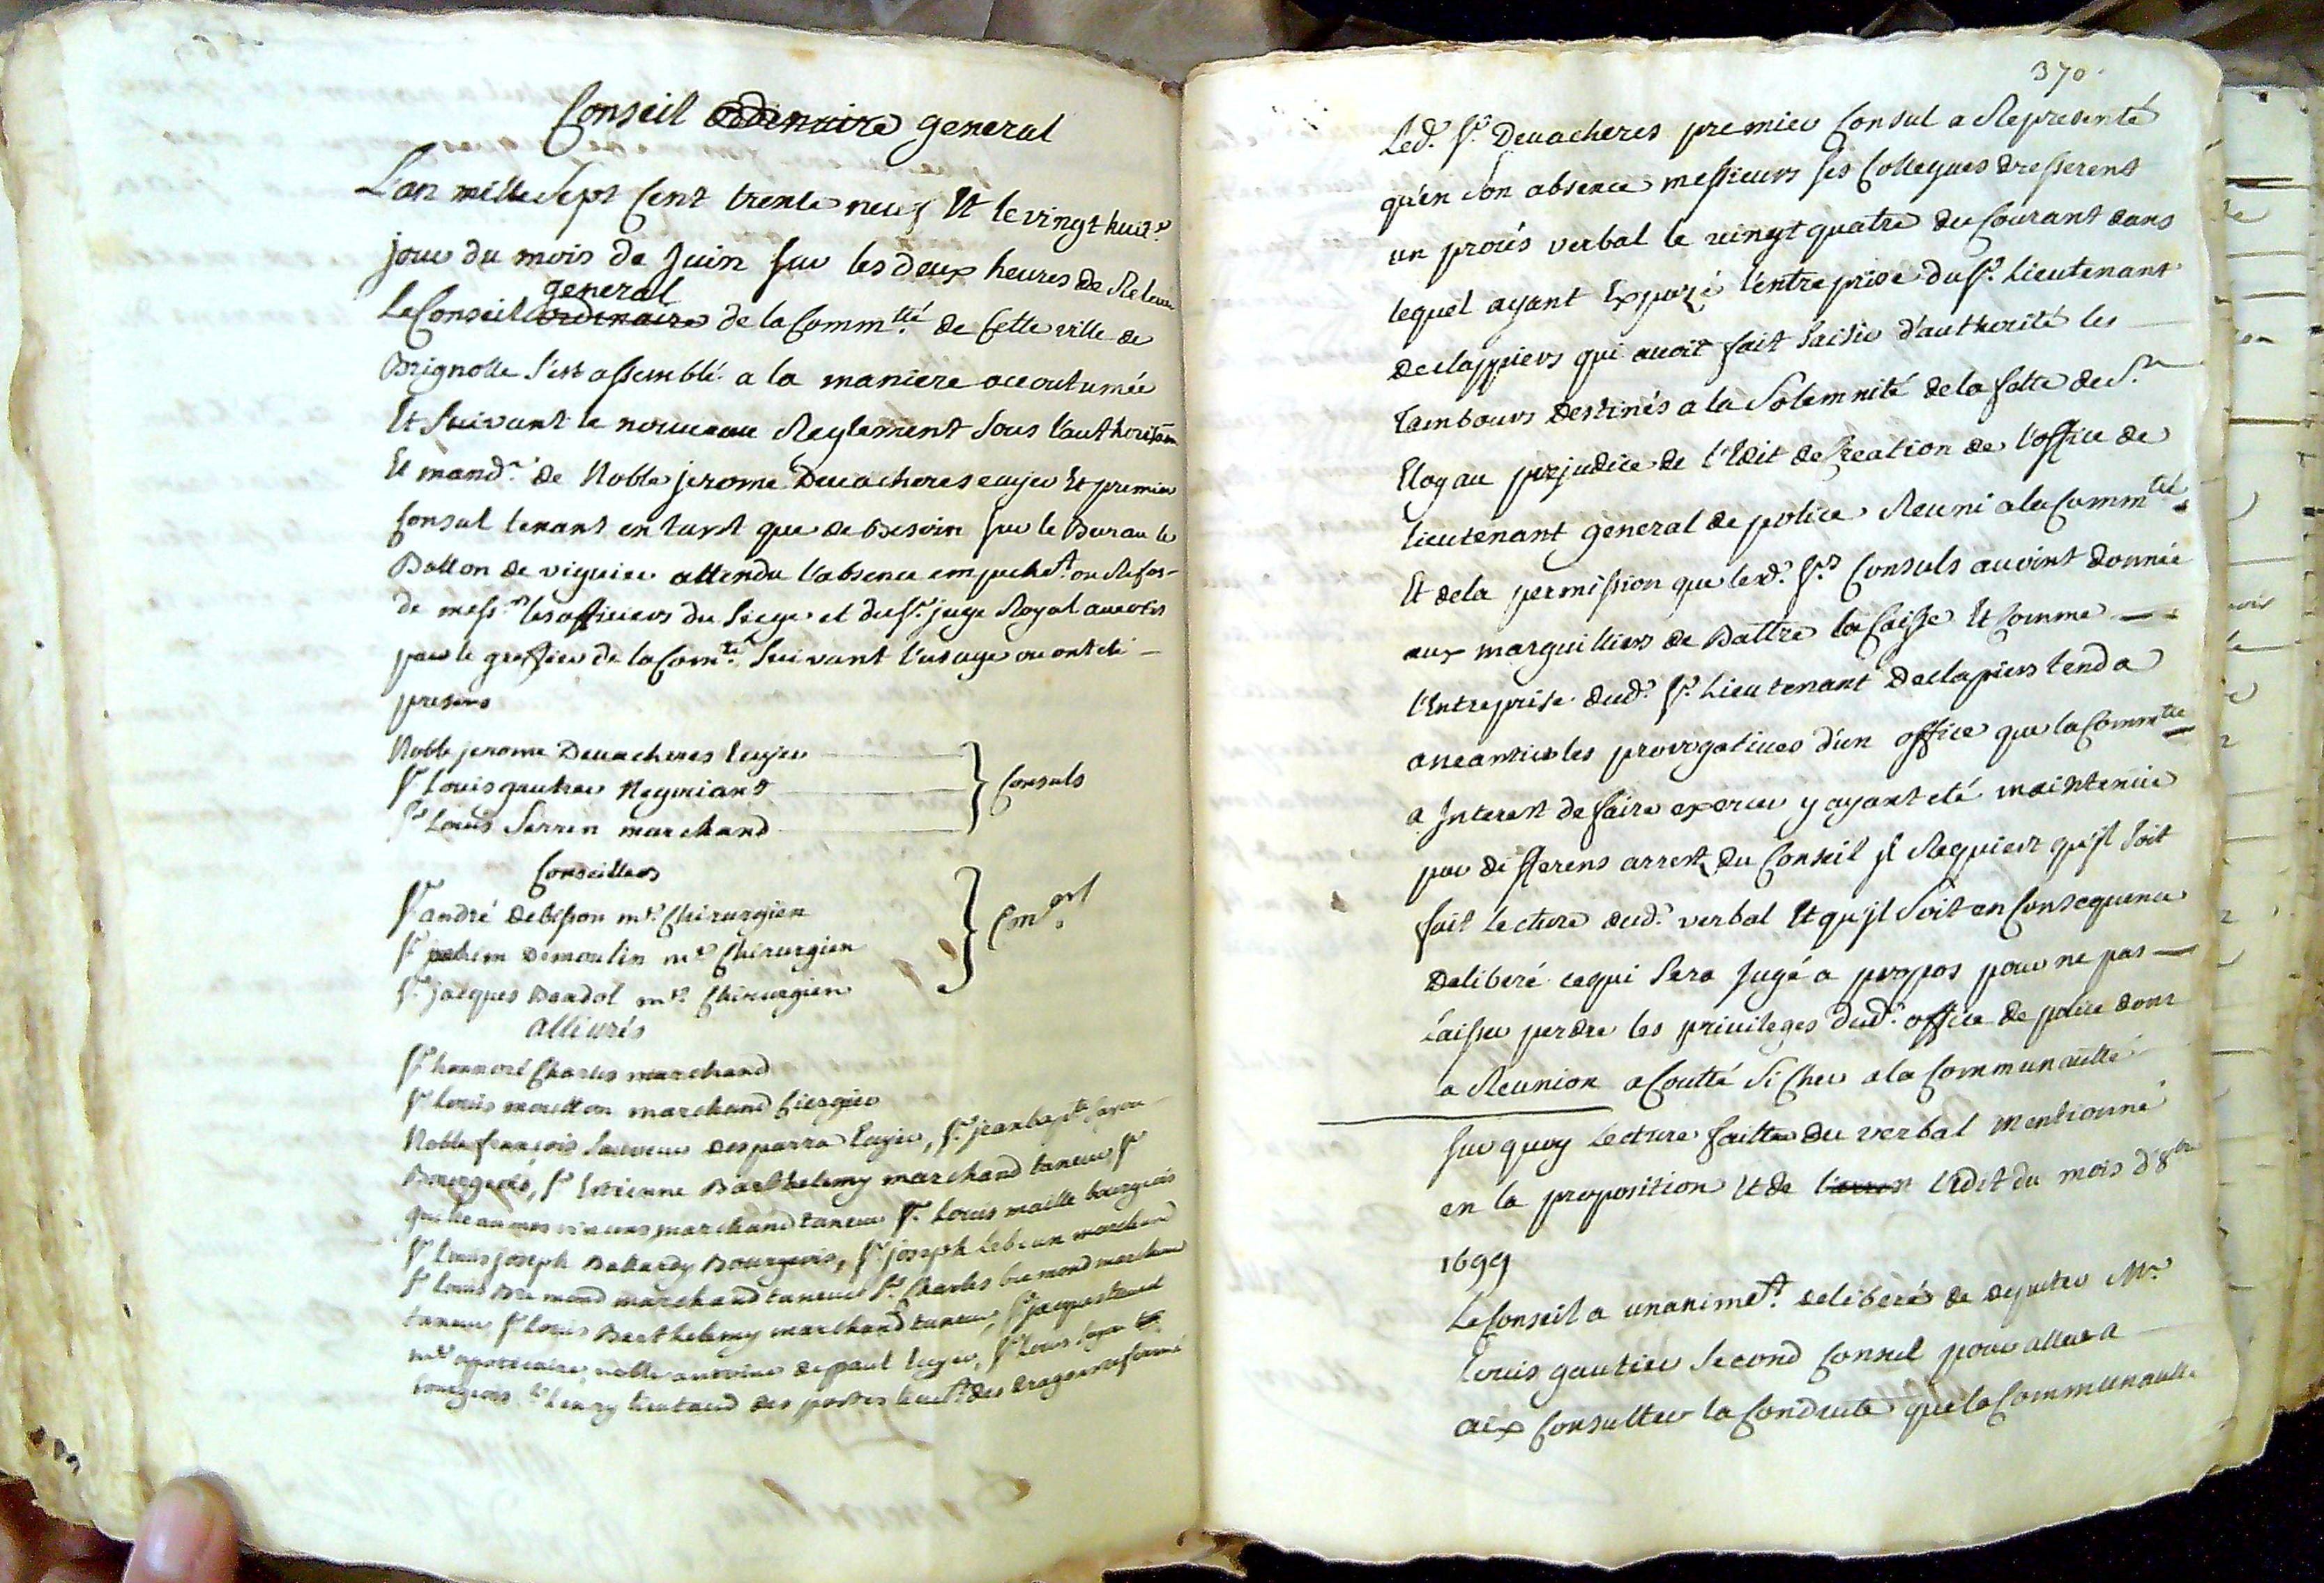 Conseil ordinaire general
L'an mille Sept Cent trente neuf Et le vingt huit.e
jour du mois de Juin sur les deux heures de Releveé
general
Le Conseil ordinaire de la Comm.tté de Cette ville de
Brignolle s'est assemblé a la maniere accoutumée
Et Suivant le nouveau Reglement sous l'authoris.on
Et mand.t de Noble jerome Devacheres ecuyer Et premier
Consul tenant en tant que de besoin sur le Bureau le
Batton de viguier attendu l'absence empech.t ou Refus
de mess.rs les officiers du Siege et du s.r juge Royal avertis
par le greffier de la Com.té suivant l'usage ou ont eté
presens
Noble jerome Devacheres Ecuyer
S.r Louis gautier Negotiant
S.r Louis Serren marchand
Consuls
Conseillers
S.r andré debesson m.e Chirurgien
S.r demoulin m.e Chirurgien
S.r jacques Dandol m.e Chirurgien
allivrés
S.r honnoré Charles marchand
S.r Louis moutton marchand Ciergier
Noble françois Sauveur desparra Ecuyer, S.r jean bap.te
Bourgeois, S.r Estienne Barthelemy marchand taneur, S.r
marchand taneur S.r Louis maille bourgeois
S.r Louis joseph Bourgeois, S.r joseph Lebrun marchand
S.r Louis Bremond marchand taneur S.r Charles bremond marchand
taneur S.r Louis Barthelemy marchand taneur, S.r jacques
m.e apoticaire, noble antoine depaul Ecuyer, S.r Louis
bourgeois S.r henry lieutaud des postes lieut.t des dragons reformé
370
Led.t S.r Devacheres premier Consul a Representé
qu'en son absence messieurs ses Collegues dresserent
un procés verbal le vingt quatre du Courant dans
lequel ayant Exposé l'entreprise du s.r Lieutenant
Declappiers qui avoit fait saisir d'authorité les
Tambours destinés a la Solemnité de la fette de S.t
Eloy au prejudice de l'Edit de Creation de l'office de
Lieutenant general de police Reuni a la Comm.tté
Et de la permission que lesd.s S.rs Consuls avoint donnée
aux marguilliers de Battre la Caisse Et Comme
l'Entreprise dud.t S.r Lieutenant Declapiers tend a
aneantir les prerogatives d'un office que la Comm.tté
a Interest de faire exercer y ayant eté maintenüe
par differens arrest du Conseil jl Requiert qu'jl soit
fait Lecture dud.t verbal Et qu'jl soit en Consequence
Deliberé ce qui sera Jugé a propos pour ne pas
Laisser perdre les privileges dud.t office de police dont
la Reunion a Coutté si Cher a la Communautté
Sur quoy Lecture faitte du verbal mentionné
en la proposition Et de l'arrest l'Edit du mois d'8bre
1699
Le Conseil a unanimem.t deliberé de deputer M.r
Louis gautier second Consul pour aller a
aix Consulter la Conduite que la Communautté